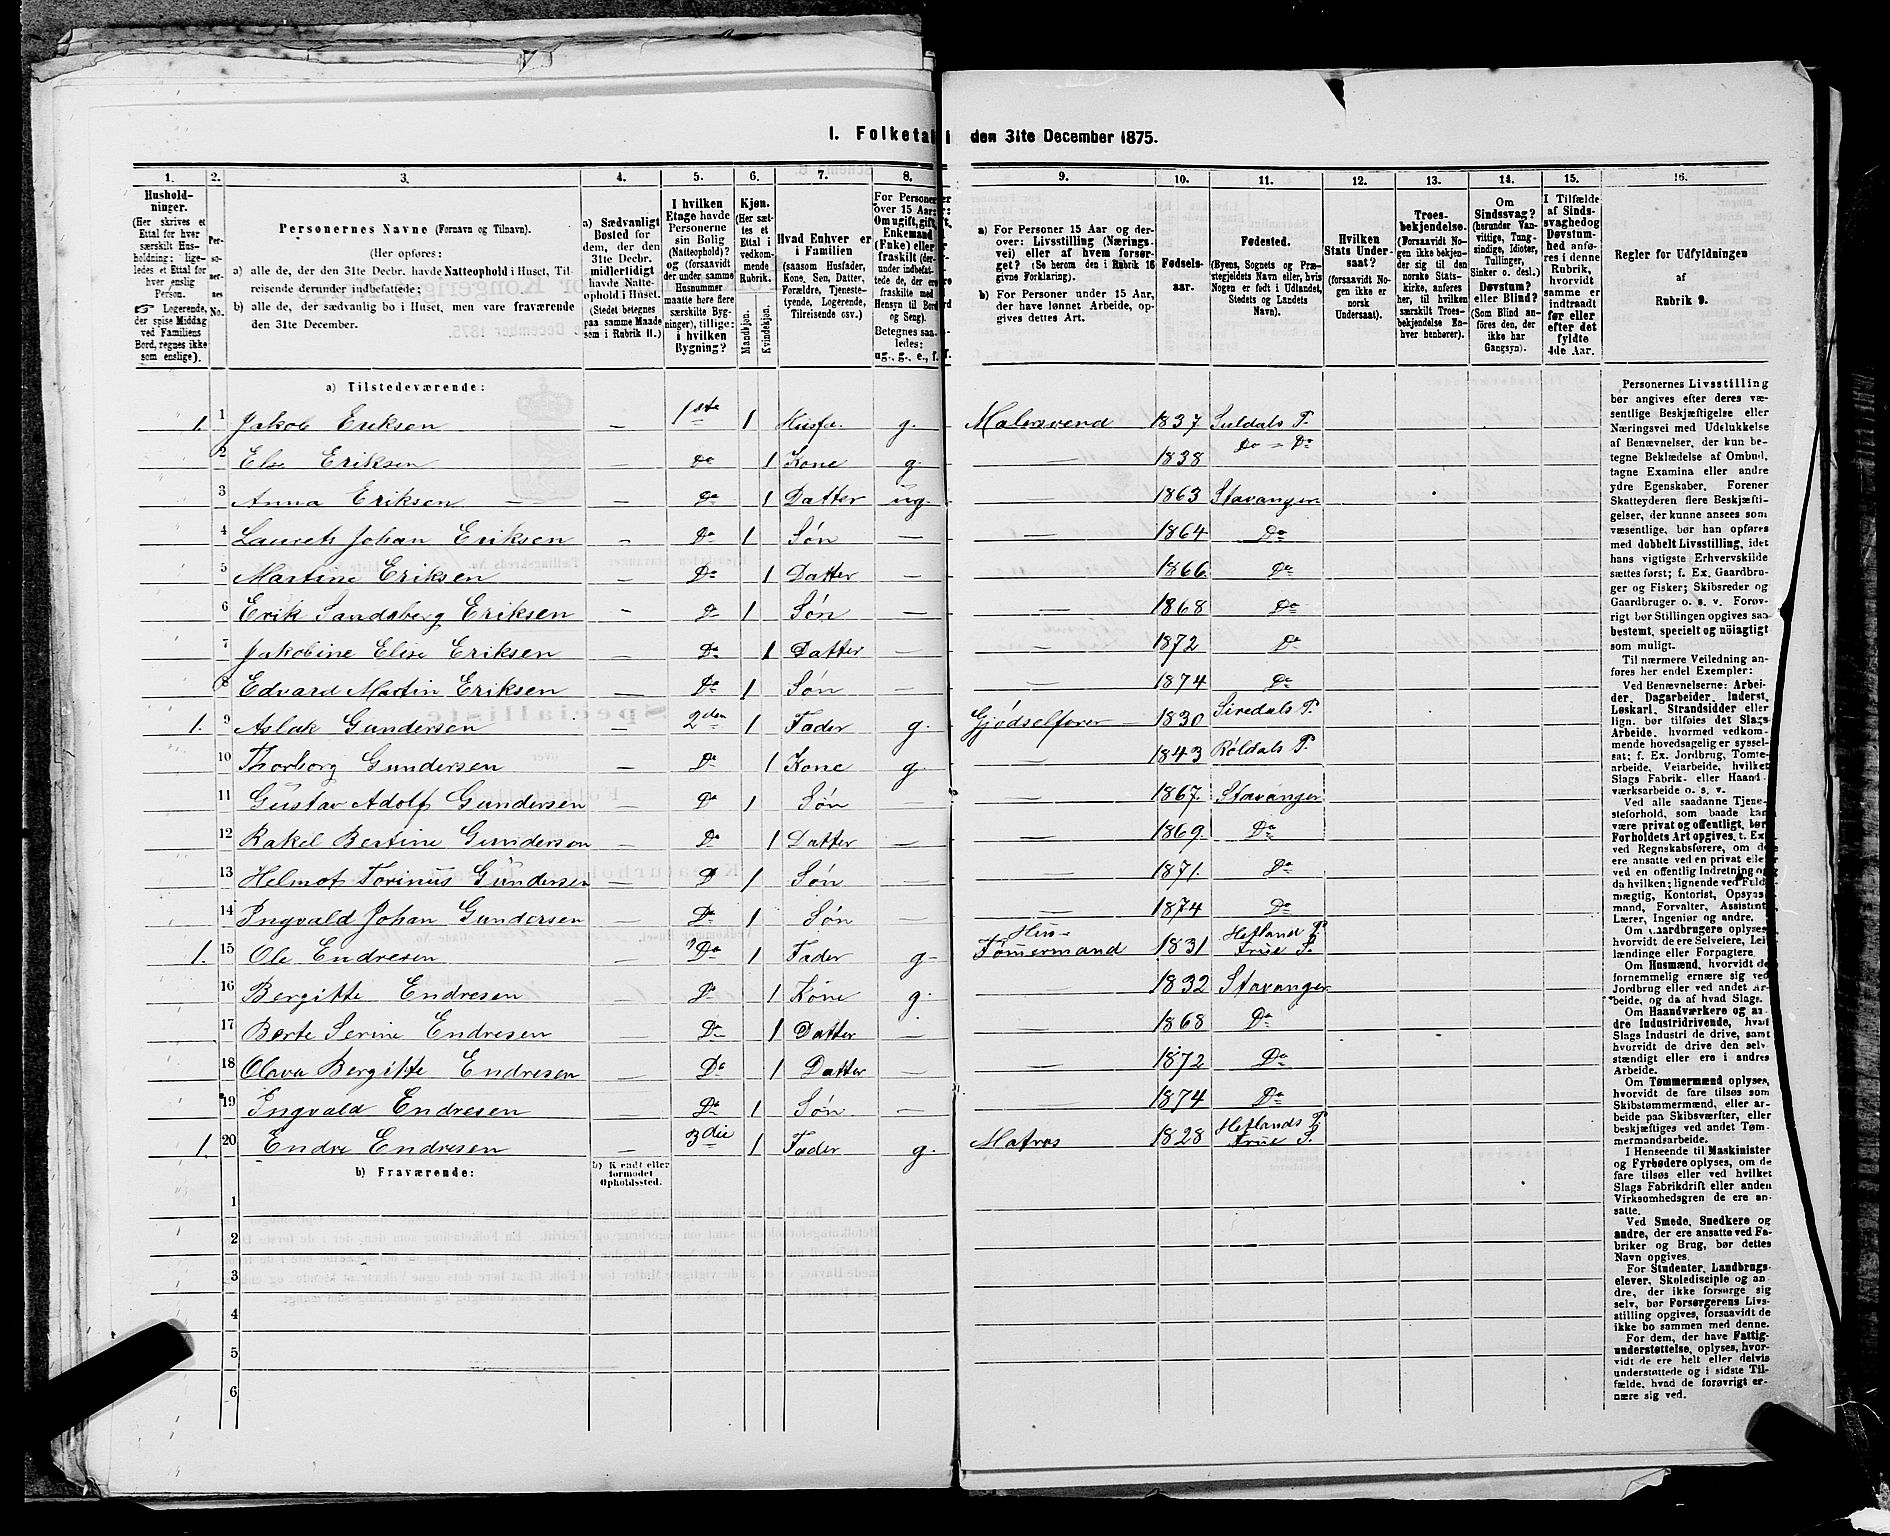 I. Folketal i den 31te December 1875.
1. 2. 3. 4. 5. 6. 7. 8. 9. 10. 11. 12. 13. 14. 15. 16.
Hushold-
ninger.
(Her skrives et
Ettal for hver
særskilt Hus-
holdning; lige-
ledes et Ettal for
hver enslig
Person.
☞ Logerende,
der spise Middag
ved Familiens
Bord, regnes ikke
som enslige).
Per-
so-
ner-
nes
No.
Personernes Navne (Fornavn og Tilnavn).
(Her opføres:
a) alle de, der den 31te Decbr. havde Natteophold i Huset, Til-
reisende derunder indbefattede;
b) alle de, der sædvanlig bo i Huset, men vare fraværende
den 31te December.
a) Sædvanligt
Bosted for
dem, der den
31te Decbr.
midlertidigt
havde Natte-
ophold i Huset.
(Stedet betegnes
paa samme Maade
som i Rubrik 11.)
I hvilken
Etage havde
Personerne
sin Bolig
(Natteophold)?
og (forsaavidt
der under samme
Husnummer
maatte høre flere
særskilte Byg-
ninger), tillige:
i hvilken
Bygning?
Kjøn.
(Her sæt-
tes et
Ettal i
vedkom-
mende
Rubrik.
Mandkjøn.
Kvindekjøn.
Hvad Enhver er
i Familien
(saasom Husfader,
Kone, Søn, Datter,
Forældre, Tjeneste-
tyende, Logerende,
Tilreisende osv.)
For Personer
over 15 Aar:
Om ugift, gift,
Enkemand
(Enke) eller
fraskilt (der-
under indbefat-
tede de, der ere
fraskilte med
Hensyn til Bord
og Seng).
Betegnes saa-
ledes:
ug., g., e., f.
a) For Personer 15 Aar og der-
over: Livsstilling (Nærings-
vei) eller af hvem forsør-
get? (Se herom den i Rubrik 16
givne Forklaring).
b) For Personer under 15 Aar,
der have lønnet Arbeide, op-
gives dettes Art.
Fødsels-
aar.
Fødested.
(Byens, Sognets og Præ-
stegjeldets Navn eller, hvis
Nogen er født i Udlandet,
Stedets og Landets
Navn).
Hvilken
Stats Under-
saat?
(forsaavidt No-
gen ikke er
norsk
Undersaat).
Troes-
bekjendelse.
(Forsaavidt No-
gen ikke bekjen-
der sig til den
norske Stats-
kirke, anføres
her, til hvilken
særskilt Troes-
bekjendelse En-
hver henhører).
Om
Sindssvag?
(herunder Van-
vittige, Tung-
sindige, Idioter,
Tullinger,
Sinker o. desl.)
Døvstum?
eller Blind?
(Som Blind an-
føres den, der
ikke har
Gangsyn).
I Tilfælde
af Sinds-
svaghed og
Døvstum-
hed anfø-
res i denne
Rubrik,
hvorvidt
samme er
indtraadt
før eller
efter det
fyldte
4de Aar.
Regler for Udfyldningen
af
Rubrik 9.
a) Tilstedeværende:
1. 1 Jakob Eriksen – 1ste 1 Husfa. g. Malersvend 1837. Suldals P.
2 Else Eriksen – Do 1 Kone g. – 1838 Do – Do
3 Anna Eriksen – – Do 1 Datter ug. – 1863 Stavanger
4 Laurets Johan Eriksen – Do 1 Søn – – 1864 Do
5 Martine Eriksen – Do 1 Datter – – 1866. Do
6 Erik Sandsberg Eriksen – Do 1 Søn – – 1868 Do
7 Jakobine Elise Eriksen – Do 1 Datter – – 1872 Do
8 Edvard Martin Eriksen – Do 1 Søn – – 1874 Do
1. 9 Aslak Gundersen – 2den 1 Fader g. Gjødselfører 1830 Siredals P.
10 Thorborg Gundersen – Do 1 Kone g. – 1843 Røldals P.
11 Gustav Adolf Gundersen – Do 1 Søn – 1867. Stavanger
12 Rakel Bertine Gundersen – Do 1 Datter – – 1869. Do
13 Helmof Torinus Gundersen – D 1 Søn – 1871. Do
14 Ingvald Johan Gundersen – Do 1 Søn – – 1874 Do
1. 15 Ole Endresen Do 1 Fader g. Hus-
Tømmermand 1831 Hetland P.
Frue S.
16 Bergitte Endresen – Do 1 Kone g. – 1832 Stavanger
17 Berte Serine Endresen – Do 1 Datter – – 1868 Do
18 Olava Bergitte Endresen – Do 1 Datter – – 1872 Do
19 Engvald Endresen – Do 1 Søn – – 1874 Do
1. 20 Endre Endresen – 3die 1 Fader g. Matros 1828 Hetlands P.
Frue S.
b) Fraværende:
b) Kjendt eller
formodet
Opholdssted.
1
2
3
4
5
6
Personernes Livsstilling
bør angives efter deres væ-
sentlige Beskjæftigelse eller
Næringsvei med Udelukkelse
af Benævnelser, der kun be-
tegne Beklædelse af Ombud,
tagne Examina eller andre
ydre Egenskaber. Forener
Skatteyderen flere Beskjæfti-
gelser, der kunne ansees som
væsentlige, bør han opføres
med dobbelt Livsstilling, idet
hans vigtigste Erhvervskilde
sættes først; f. Ex. Gaardbru-
ger og Fisker; Skibsreder og
Gaardbruger o. s. v. Forøv-
rigt bør Stillingen opgives saa
bestemt, specielt og nöiagtigt
som muligt.
Til nærmere Veiledning an-
føres her endel Exempler:
Ved Benævnelserne: Arbei-
der, Dagarbeider, Inderst,
Løskarl, Strandsidder eller
lign. bør tilføies det Slags
Arbeide, hvormed vedkom-
mende hovedsagelig er syssel-
sat; f. Ex. Jordbrug, Tomte-
arbeide, Veiarbeide, hvilket
Slags Fabrik- eller Haand-
værksarbeide o. s. v.
Ved alle saadanne Tjene-
steforhold, som baade kan
være privat og offentligt, bør
Forholdets Art opgives, t. Ex.
ved Regnskabsførere, om de
ere ansatte ved en privat eller
ved en offentlig Indretning og
da hvilken; lignende ved Fuld-
mægtig, Kontorist, Opsyns-
mand, Forvalter, Assistent,
Lærer, Ingeniør og andre.
Om Gaardbrugere oplyses,
hvorvidt de ere Selveiere, Lei-
lændinge eller Forpagtere.
Om Husmænd, hvorvidt de
fornemmelig ernære sig ved
Jordbrug eller ved andet Ar-
beide, og da af hvad Slags.
Om Haandværkere og an-
dre Industridrivende, hvad
Slags Industri de drive, samt
hvorvidt de drive den selv-
stændigt eller ere i andres
Arbeide.
Om Tømmermænd oplyses,
hvorvidt de fare tilsøs som
Skibstømmermænd, eller ar-
beide paa Skibsværfter, eller
beskjæftiges ved andet Tøm-
mermandsarbeide.
I Henseende til Maskinister
og Fyrbødere oplyses, om de
fare tilsøs eller ved hvilket
Slags Fabrikdrift eller anden
Virksomhedsgren de ere an-
satte.
Ved Smede, Snedkere og
andre, der ere ansatte ved Fa-
briker og Brug, bør dettes
Navn opgives.
For Studenter, Landbrugs-
elever, Skoledisciple og an-
dre, der ikke forsørge sig
selv, bør Forsørgerens Livs-
stilling opgives, forsaavidt de
ikke bo sammen med denne.
For dem, der have Fattig-
understøttelse, oplyses, hvor-
vidt de ere helt eller delvis
understøttede og i sidste Til-
fælde, hvad de forøvrigt er-
nære sig ved.